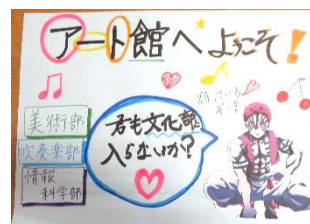 アート館へようこそ!
美術部
吹奏楽部
情報
科学部
君も文化部
入らないか?